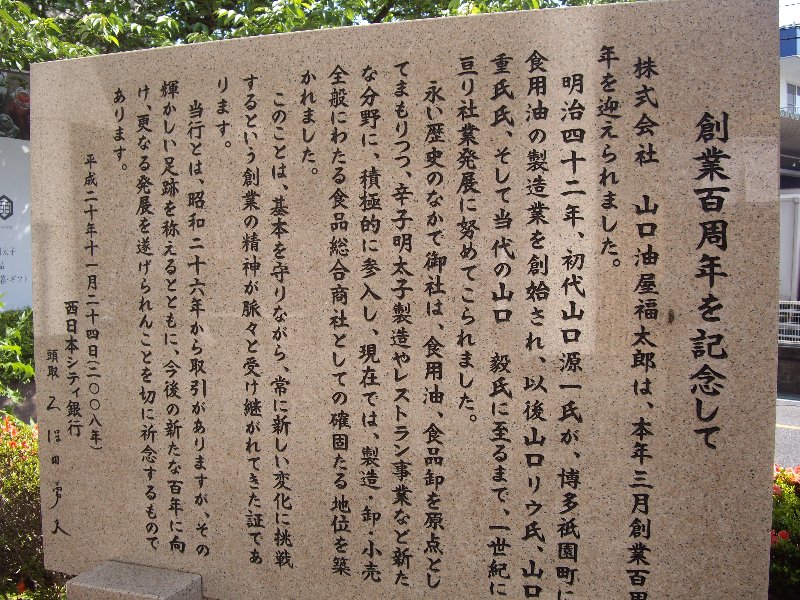 創業百周年を記念して
株式会社 山口油屋福太郎は、本年三月創業百周
年を迎えられました。
明治四十二年、初代山口源一氏が、博多祇園町に
食用油の製造業を創始され、以後山口リウ氏、山口
重氏氏、そして当代の山口 毅氏に至るまで、一世紀に
亘り社業発展に努めてこられました。
永い歴史のなかで御社は、食用油、食品卸を原点とし
てまもりつつ、辛子明太子製造やレストラン事業など新た
な分野に、積極的に参入し、現在では、製造・卸・小売
全般にわたる食品総合商社としての確固たる地位を築
かれました。
このことは、基本を守りながら、常に新しい変化に挑戦
するという創業の精神が脈々と受け継がれてきた証であ
ります。
当行とは、昭和二十六年から取引がありますが、その
輝かしい足跡を称えるとともに、今後の新たな百年に向
け、更なる発展を遂げられんことを切に祈念するもので
あります。
平成二十年十一月二十四日(二〇〇八年)
西日本シティ銀行
頭取 久保田勇夫